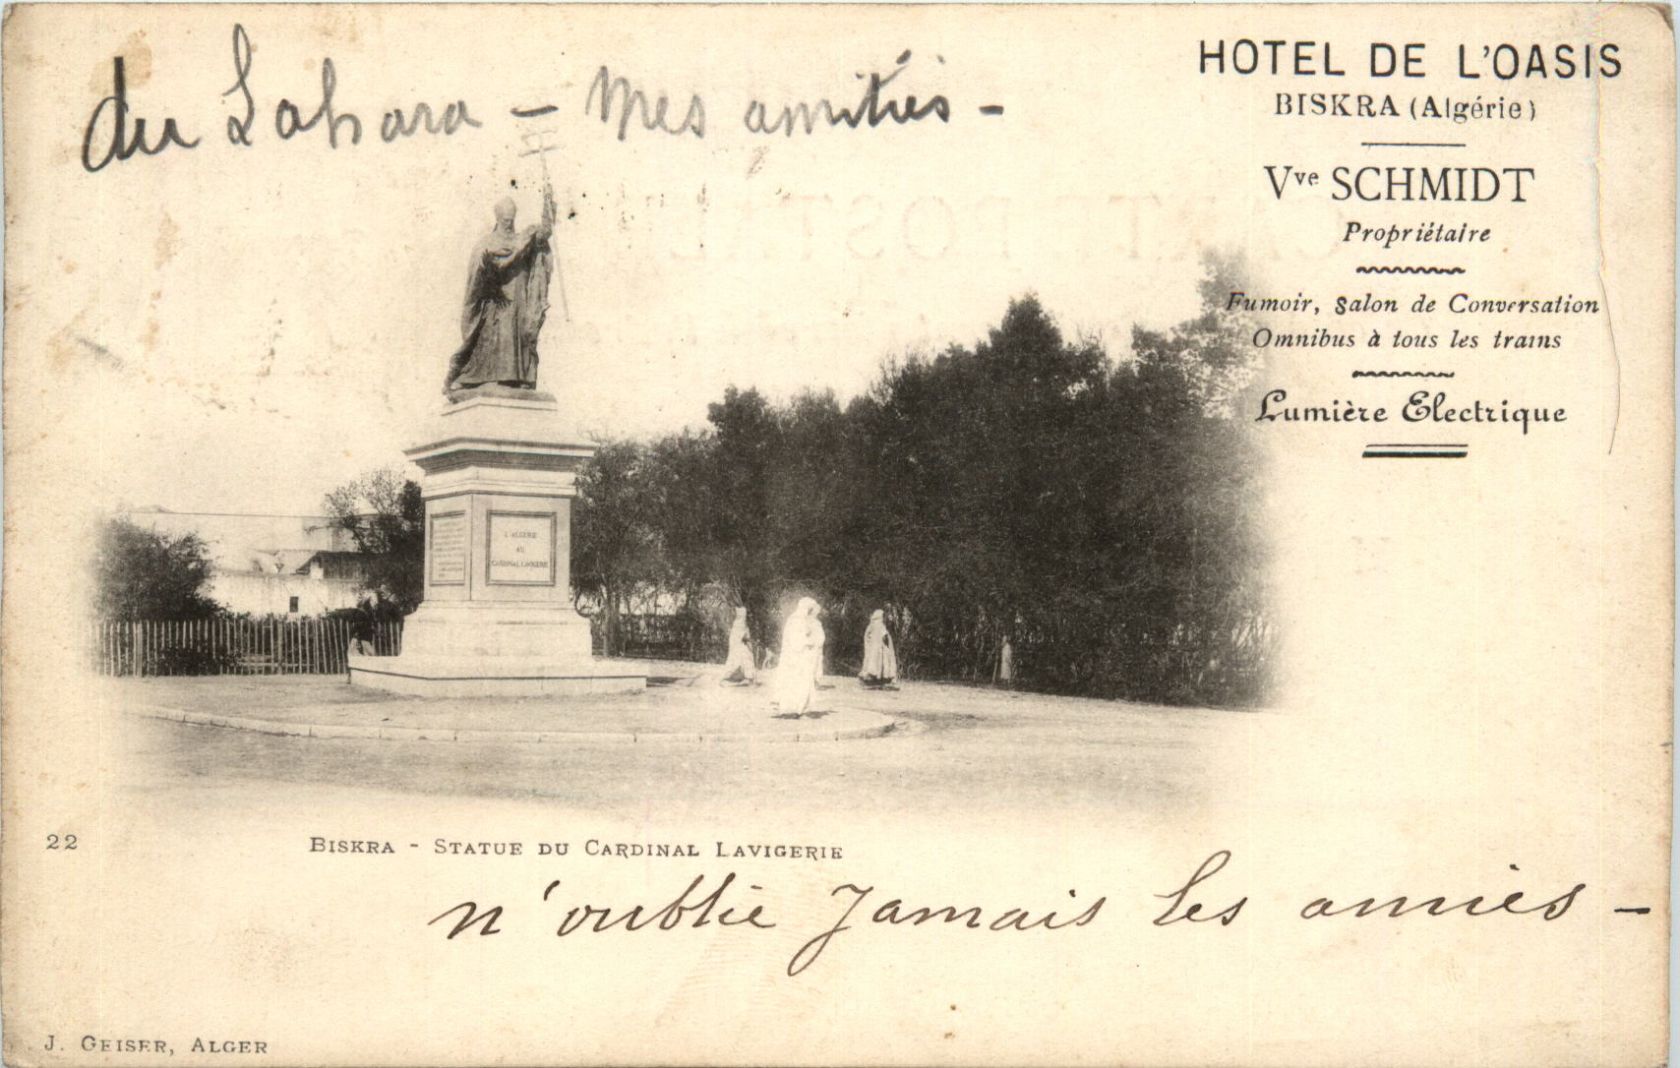 du Sahara - Mes amitiés -
HOTEL DE L'OASIS
BISKRA (Algérie)
Vve SCHMIDT
Propriétaire
Fumoir, Salon de Conversation
Omnibus à tous les trains
Lumière Electrique
L'ALGERIE
AU
CARDINAL LAVIGERIE
22
BISKRA - STATUE DU CARDINAL LAVIGERIE
n'oublie Jamais les amies -
J. GEISER, ALGER